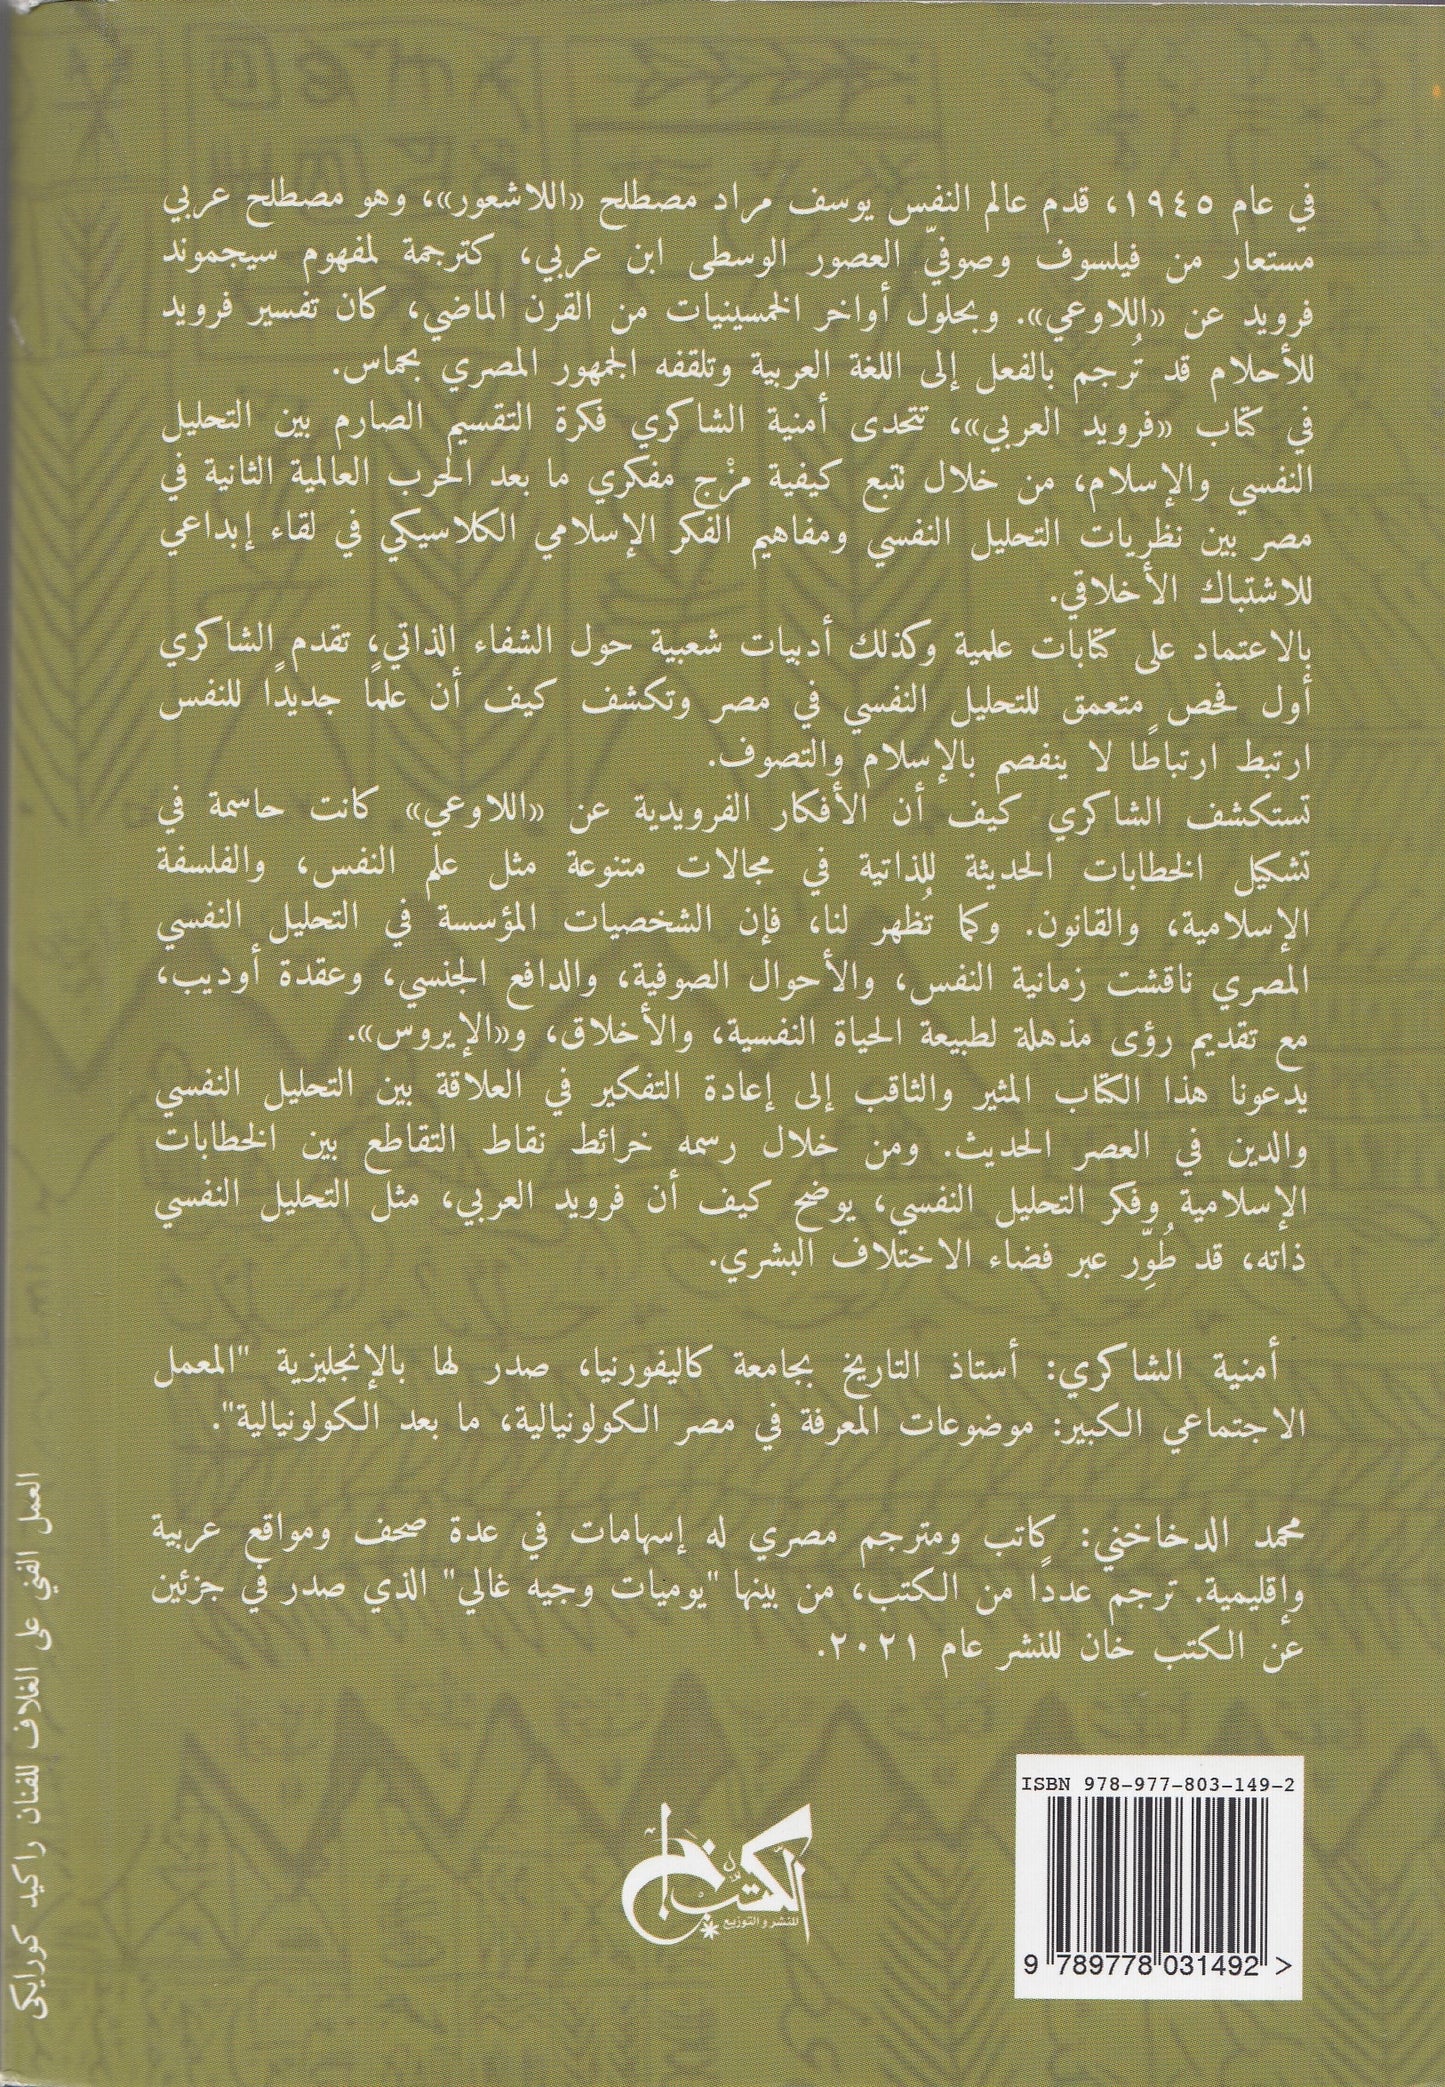 في عام ١٩٤٥، قدم عالم النفس يوسف مراد مصطلح «اللاشعور»، وهو مصطلح عربي
مستعار من فيلسوف وصوفيّ العصور الوسطى ابن عربي، كترجمة لمفهوم سيجموند
فرويد عن «اللاوعي». وبحلول أواخر الخمسينيات من القرن الماضي، كان تفسير فرويد
للأحلام قد تُرجم بالفعل إلى اللغة العربية وتلقفه الجمهور المصري بحماس.
في كتاب «فرويد العربي»، تتحدى أمنية الشاكري فكرة التقسيم الصارم بين التحليل
النفسي والإسلام، من خلال تتبع كيفية مزْج مفكري ما بعد الحرب العالمية الثانية في
مصر بين نظريات التحليل النفسي ومفاهيم الفكر الإسلامي الكلاسيكي في لقاء إبداعي
للاشتباك الأخلاقي.
بالاعتماد على كتابات علمية وكذلك أدبيات شعبية حول الشفاء الذاتي، تقدم الشاكري
أول فحص متعمق للتحليل النفسي في مصر وتكشف كيف أن علمًا جديدًا للنفس
ارتبط ارتباطًا لا ينفصم بالإسلام والتصوف.
تستكشف الشاكري كيف أن الأفكار الفرويدية عن «اللاوعي» كانت حاسمة في
تشكيل الخطابات الحديثة للذاتية في مجالات متنوعة مثل علم النفس، والفلسفة
الإسلامية، والقانون. وكما تُظهر لنا، فإن الشخصيات المؤسسة في التحليل النفسي
المصري ناقشت زمانية النفس، والأحوال الصوفية، والدافع الجنسي، وعقدة أوديب،
مع تقديم رؤى مذهلة لطبيعة الحياة النفسية، والأخلاق، و«الإيروس».
يدعونا هذا الكتاب المثير والثاقب إلى إعادة التفكير في العلاقة بين التحليل النفسي
والدين في العصر الحديث. ومن خلال رسمه خرائط نقاط التقاطع بين الخطابات
الإسلامية وفكر التحليل النفسي، يوضح كيف أن فرويد العربي، مثل التحليل النفسي
ذاته، قد طُوِّر عبر فضاء الاختلاف البشري.
أمنية الشاكري: أستاذ التاريخ بجامعة كاليفورنيا، صدر لها بالإنجليزية "المعمل
الاجتماعي الكبير: موضوعات المعرفة في مصر الكولونيالية، ما بعد الكولونيالية".
محمد الدخاخني: كاتب ومترجم مصري له إسهامات في عدة صحف ومواقع عربية
وإقليمية. ترجم عددًا من الكتب، من بينها "يوميات وجيه غالي" الذي صدر في جزئين
عن الكتب خان للنشر عام ٢٠٢١.
العمل الفني على الغلاف للفنان راكيد كورايكي
ISBN 978-977-803-149-2
9 789778 031492 >
الكتب خان
للنشر والتوزيع